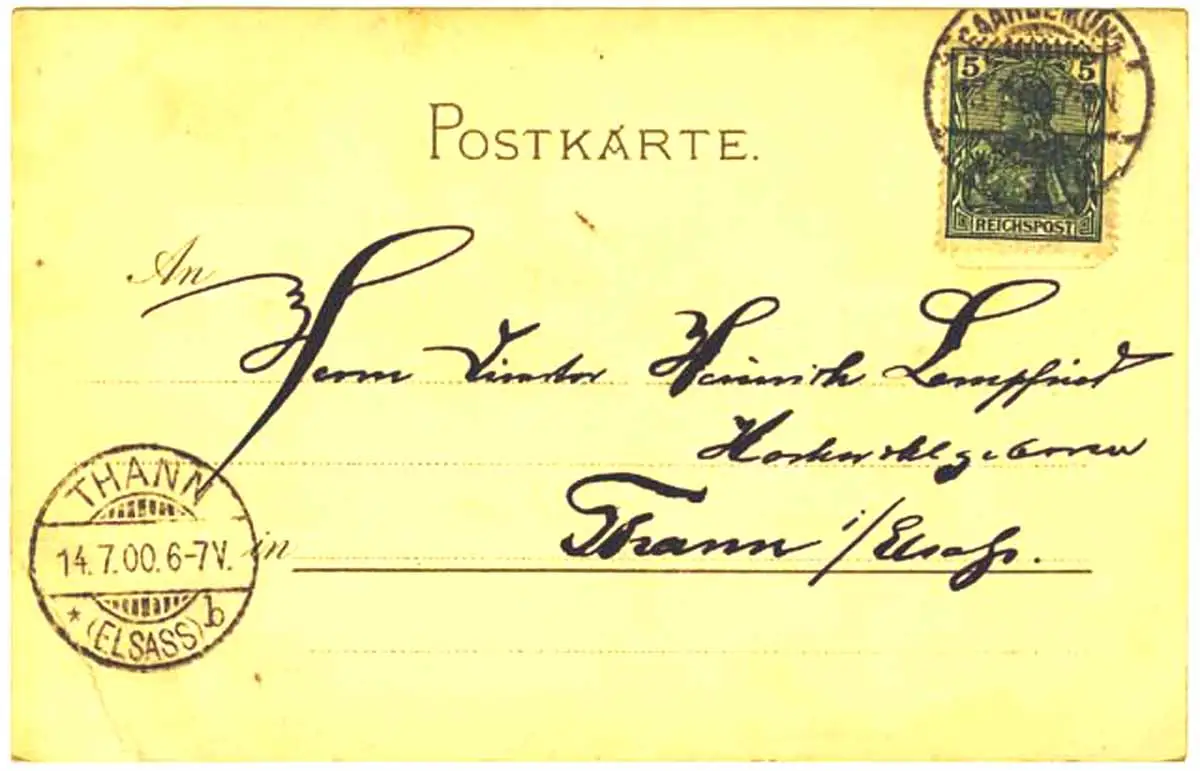 SAARGEMÜND
5 5
REICHSPOST
POSTKARTE.
An
Herrn Director Heinrich Lempfried
Hochwohlgeboren
THANN
14.7.00.6-7V.
* (ELSASS) b
in Thann i/Elsaß.